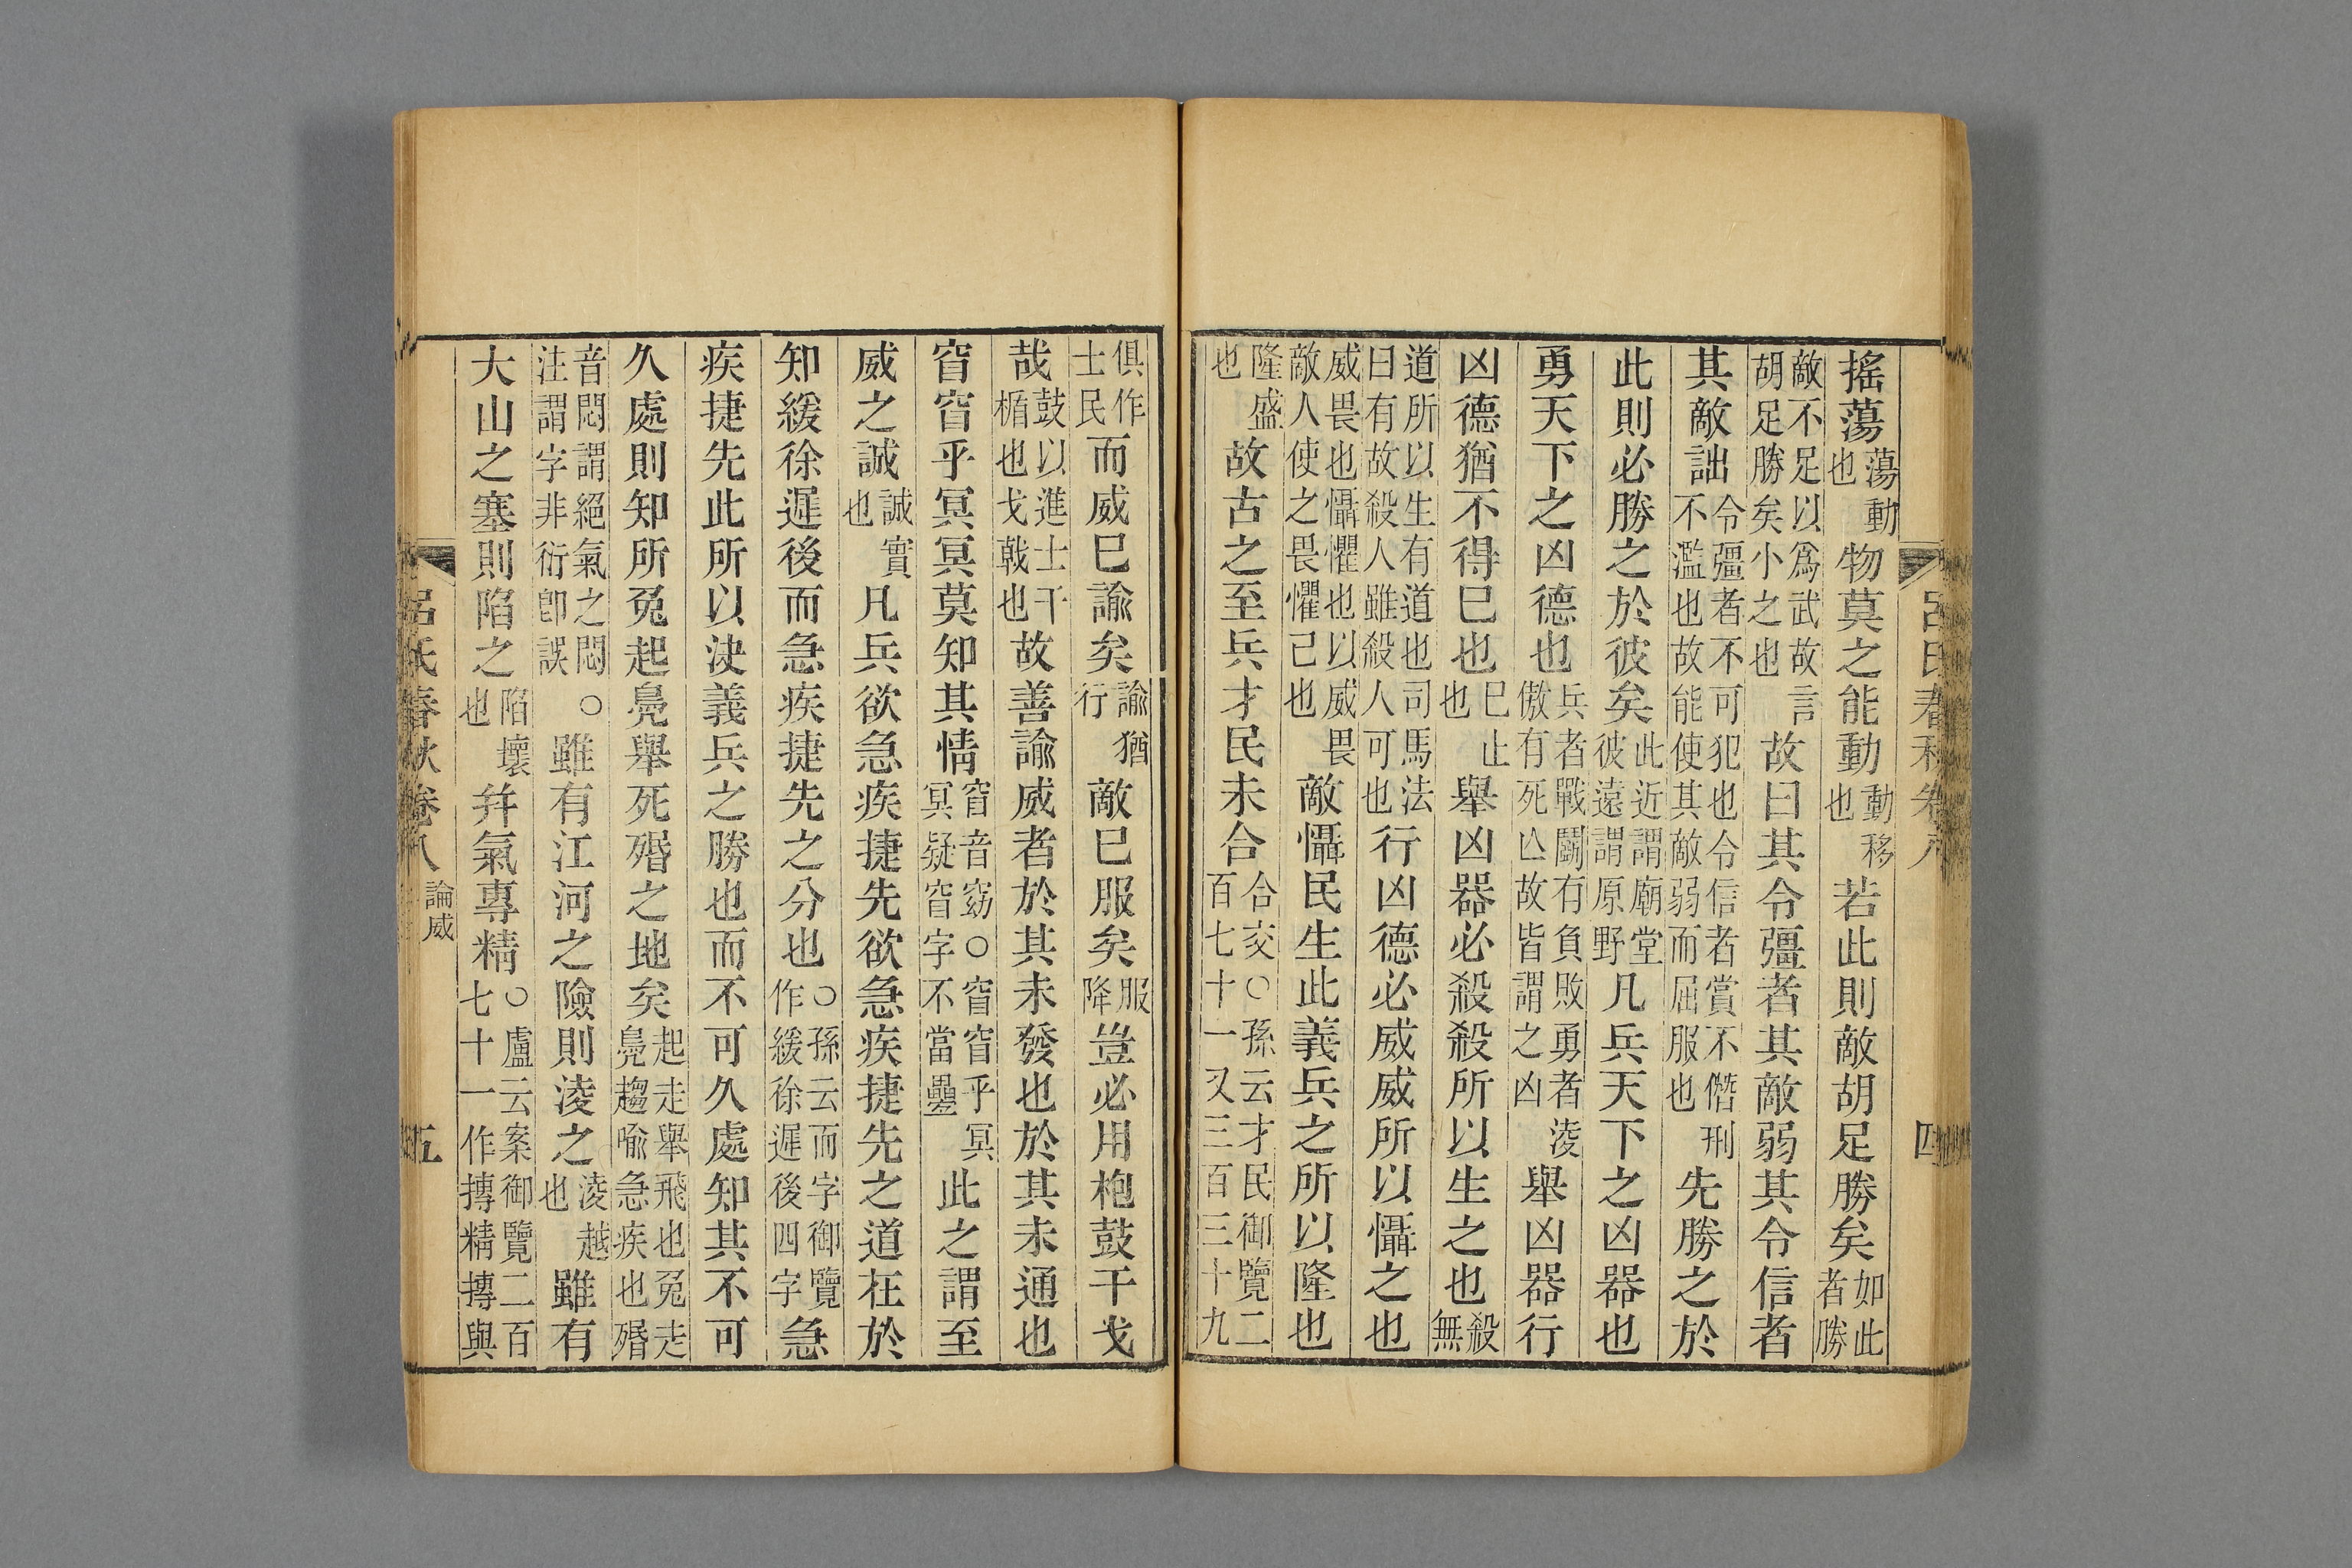 搖蕩蕩動也物莫之能動動移也若此則敵胡足勝矣如此者勝
敵不足以爲武故言胡足勝矣小之也故曰其令彊者其敵弱其令信者
其敵詘令彊者不可犯也令信者賞不僭刑不濫也故能使其敵弱而屈服也先勝之於
此則必勝之於彼矣此近謂廟堂彼遠謂原野凡兵天下之凶器也
勇天下之凶德也兵者戰鬭有負敗勇者淩傲有死亾故皆謂之凶舉凶器行
凶德猶不得巳也巳止也舉凶器必殺殺所以生之也殺無
道所以生有道也司馬法曰有故殺人雖殺人可也行凶德必威威所以懾之也
威畏也懾懼也以威畏敵人使之畏懼己也敵懾民生此義兵之所以隆也
隆盛也故古之至兵才民未合合交○孫云才民御覽二百七十一又三百三十九
俱作士民而威巳諭矣諭猶行敵巳服矣服降豈必用枹鼓干戈
哉鼓以進士干楯也戈戟也故善諭威者於其未發也於其未通也
窅窅乎冥冥莫知其情窅音窈○窅窅乎冥冥疑窅字不當疊此之謂至
威之誠誠實也凡兵欲急疾捷先欲急疾捷先之道在於
知緩徐遲後而急疾捷先之分也○孫云而字御覽作緩徐遲後四字急
疾捷先此所以決義兵之勝也而不可久處知其不可
久處則知所兔起鳧舉死殙之地矣起走舉飛也兔走鳧趨喻急疾也殙
音悶謂絕氣之悶○注謂字非衍卽誤雖有江河之險則淩之淩越也雖有
大山之塞則陷之陷壞也幷氣專精○盧云案御覽二百七十一作摶精摶與
呂氏春秋卷八
論威
五
呂氏春秋卷八
四